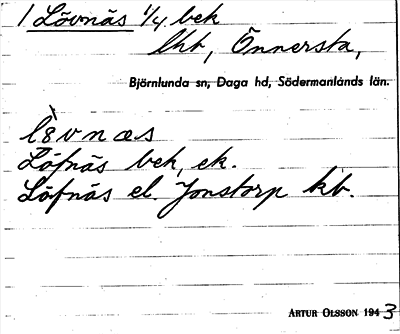 1 Lövnäs 1/4 bek
lht, Önnersta,
Björnlunda sn, Daga hd, Södermanlands län.
lèvnæs
Löfnäs bek, ek.
Löfnäs el. Jonstorp kb.
ARTUR OLSSON 1943